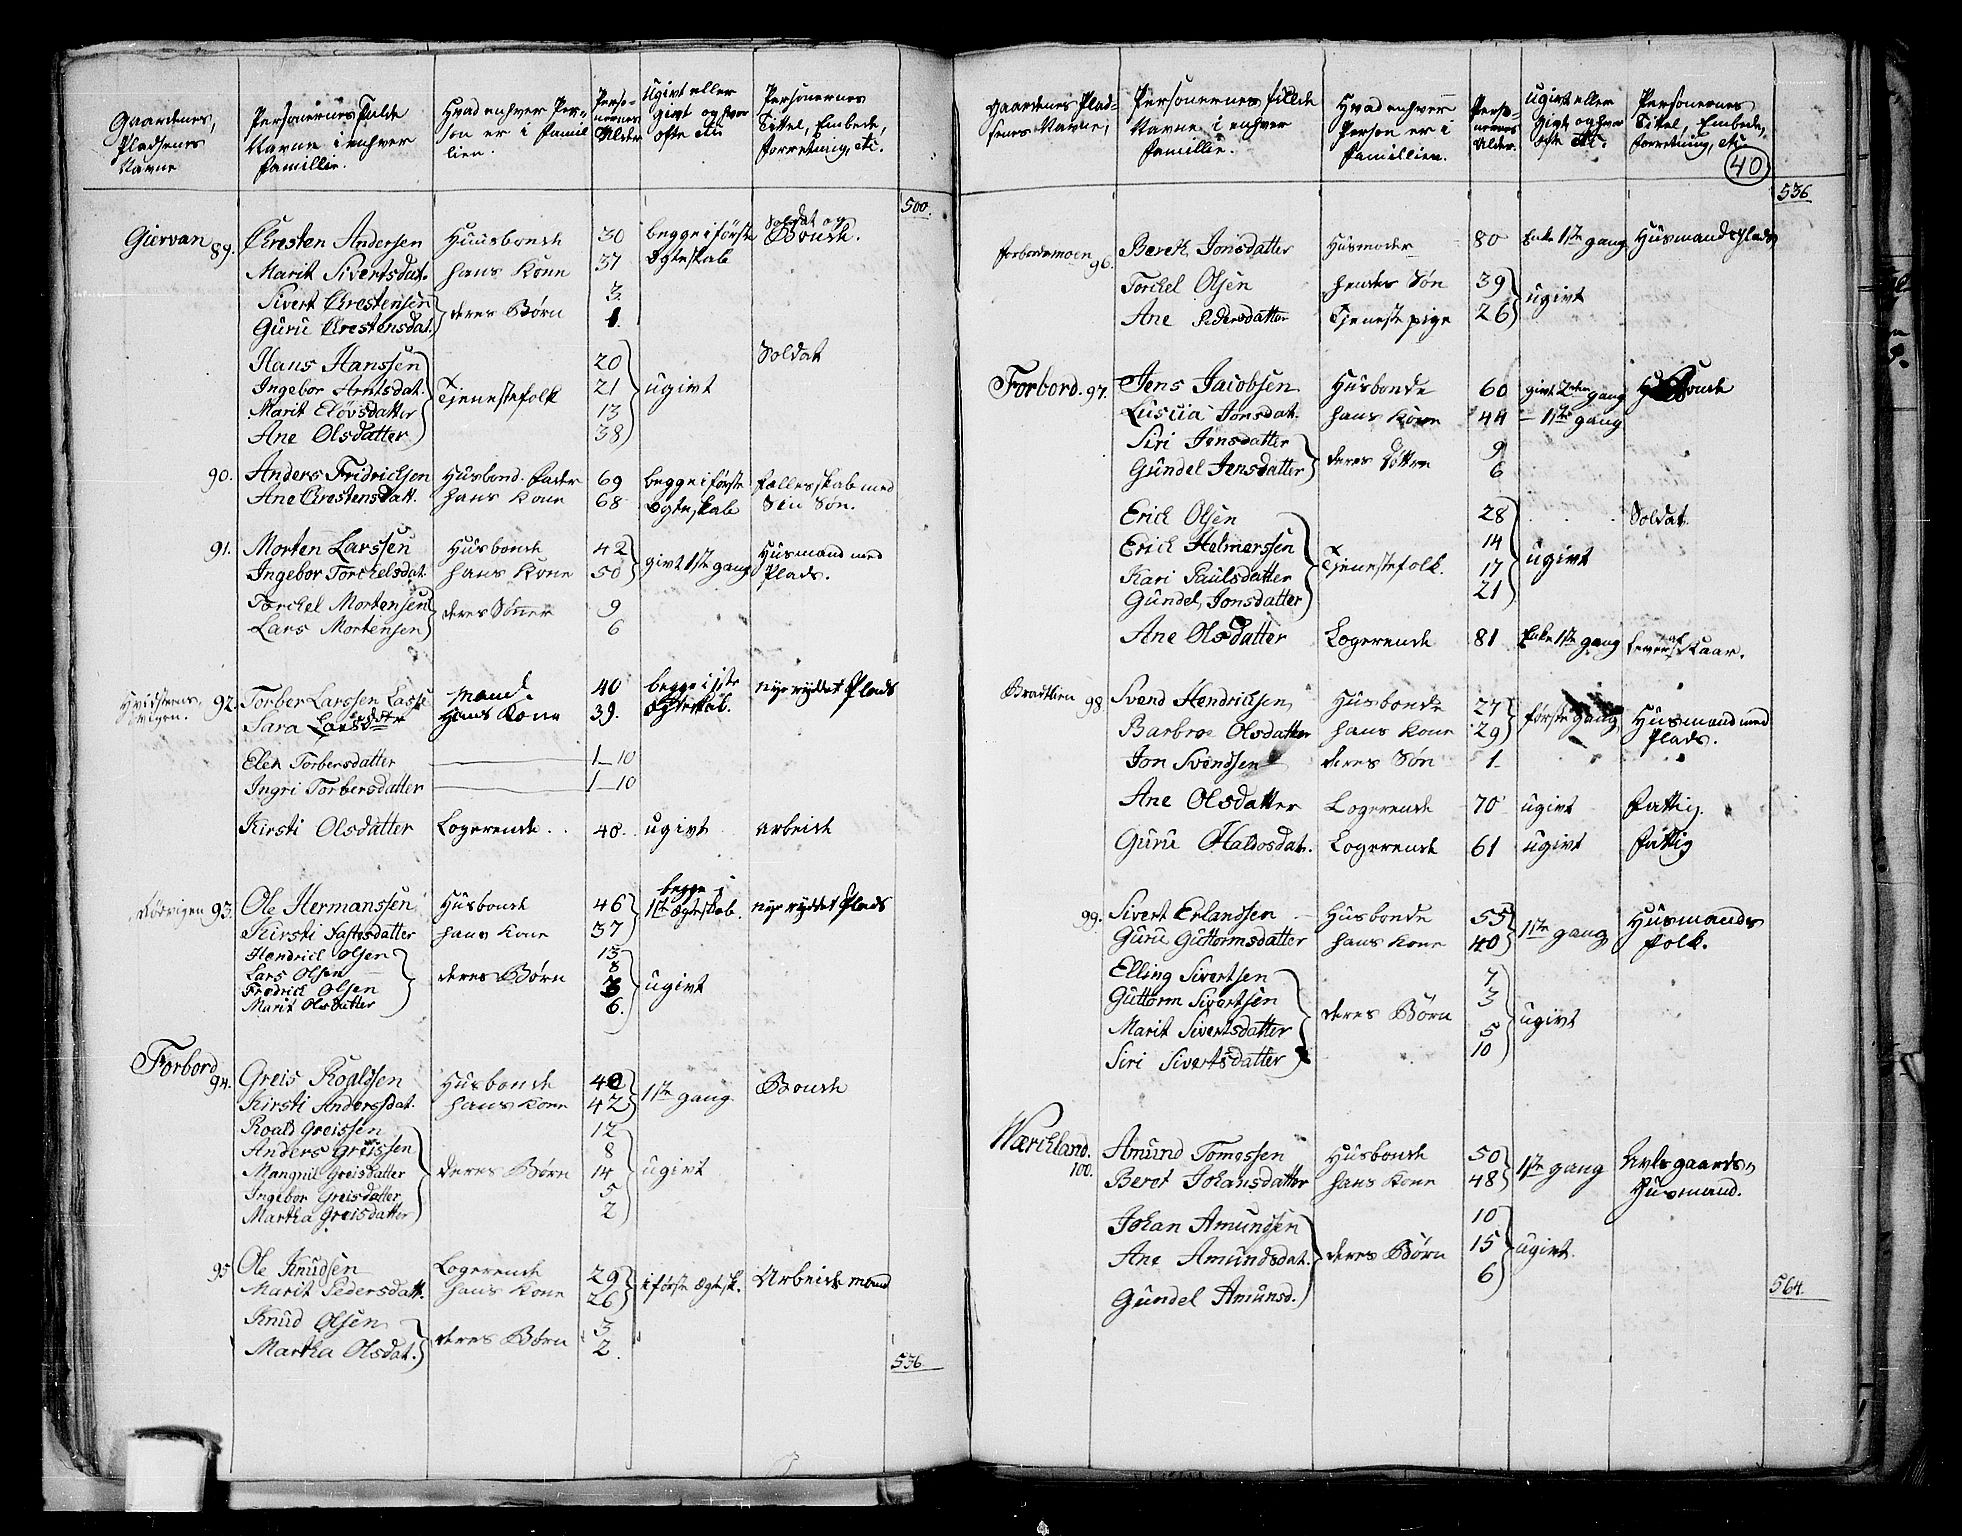 Gaardenes, Pladsenes Navne
Personernes Fulde Navne i enhver familie.
Hvad enhver Person er i familien.
Personernes Alder
Ugivt eller givt og hvor ofte etc
Personernes Tittel, Embede, forretning, etc.
500.
Giervan 89. Chresten Andersen Huusbonde 30 begge i første Soldat og Bonde.
Marit Sivertsdat. hans Kone 37 Ægteskab
Sivert Chrestensen deres Børn 3
Guru Chrestensdat. 1.
Hans Hanssen 20 Soldat
Ingebor Arntsdat. Tjenestefolk 21 ugivt
Marit Elövsdatter 13
Ane Olsdatter 38
90. Anders Fridrichsen Husbond. Fader 69 begge i første fællesskab med
Ane Chrestensdatt. hans Kone 68 Ægteskab Sin Søn.
91. Morten Larssen Husbonde 42 givt 1ste gang Husmand med
Ingebor Torchelsdat. hans Kone 50 Plads.
Torchel Mortensen deres Sönner 9
Lars Mortensen 6
92. Torber Larssen Mand. 40 begge i 1ste nye ryddet Plads
Sara Hans Kone 39. Ægteskab.
Elen Torbersdatter 1_10
Ingri Torbersdatter 1_10
Kirsti Olsdatter Logerende. 40. ugivt arbeide
93. Ole Hermanssen Husbonde 46 begge i nye ryddet Plads
Kirsti Fastesdatter hans Kone 37 1ste Ægteskab.
Hendrich Olsen 13
Lars Olsen deres Børn 8 ugivt
Fredrich Olsen 3
Marit Olsdatter 6.
Forbord
94. Greis Roaldsen Husbonde 40 1ste gang Bonde
Kirsti Andersdat. hans Kone 42
Roald Greissen 12
Anders Greissen 8
Mangnil Greisdatter deres Børn 14 ugivt
Ingebor Greisdatter 5
Martha Greisdatter 2
95 Ole Knudsen Logerende 29 i første Ægtesk. Arbeids mand
Marit Pedersdatt. hans Kone 26
Knud Olsen deres Børn 3
Martha Olsdat. 2.
536
Gaardenes Pladsenes Navne,
Personernes fulde Navne i enhver familie.
Hvad enhver Person er i familien.
Personernes Alder.
Ugivt eller givt og hvor ofte etc.
Personernes Titel, Embede, forretning, etc.
40
536
Forbordsmoen 96. Bereth Jonsdatter Husmoder 80 Enke 1ste gang Husmandsplads
Torchel Olsen hendes Søn 39 ugivt
Ane Pedersdatter Tjeneste pige 26
Forbord. 97. Jens Jacobsen Husbonde 60 givt 2den gang
Luscia Jonsdat. hans Kone 44 — 1ste gang
Siri Jensdatter deres döttre 9
Gundel Jensdatter 6
Erich Olsen 28 Soldat.
Erich Helmerssen 14
Kari Paulsdatter Tjenestefolk. 17 ugivt
Gundel Jonsdatter 21
Ane Olsdatter Logerende 81 Enke 1ste gang Lever af Kaar.
98. Svend Hendrichsen Husbonde 27 første gang Husmand med
Barbroe Olsdatter hans Kone 29 Plads.
Jon Svendsen deres Søn 1
Ane Olsdatter Logerende 70 ugivt Fattig.
Guru Haldosdat. Logerende 61 ugivt fattig
99. Sivert Erlandsen Husbonde 55 1ste gang Husmands
Guru Guttormsdatter hans Kone 40 folk.
Elling Sivertsen 7
Guttorm Sivertsen deres Børn 3 ugivt
Marit Sivertsdatter 5
Siri Sivertsdatter 10
Værchland.
100. Amund Tomessen Husbonde 50 1ste gang Avlsgaards
Beret Johansdatter hans Kone 48 Husmand.
Johan Amundsen 10
Ane Amundsdat. deres Børn 15 ugivt.
Gundel Amunsd. 6
564.